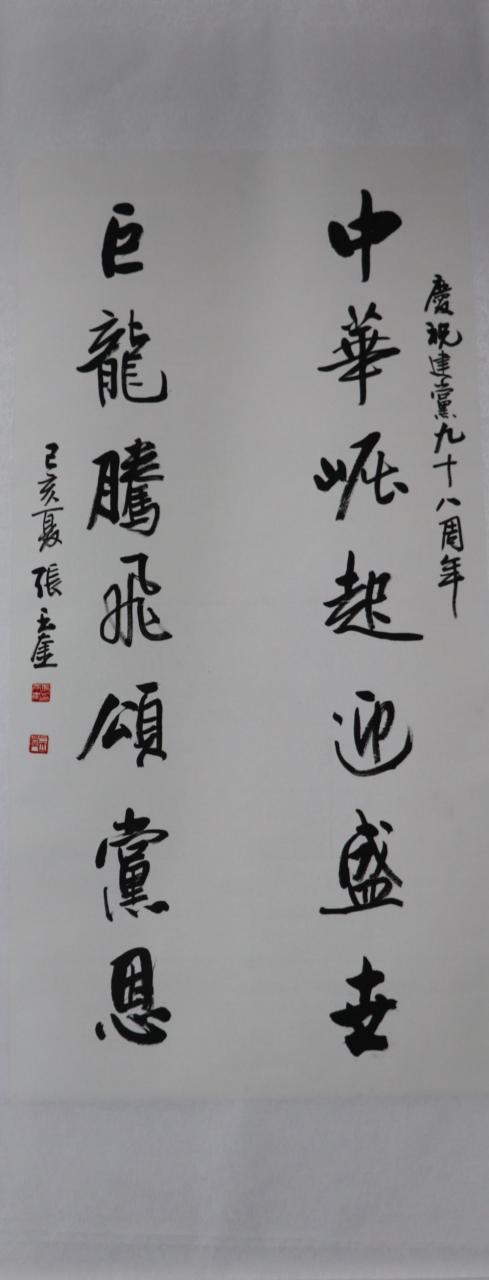 慶祝建黨九十八周年
中華崛起迎盛世
巨龍騰飛頌黨恩
己亥夏 張玉奎